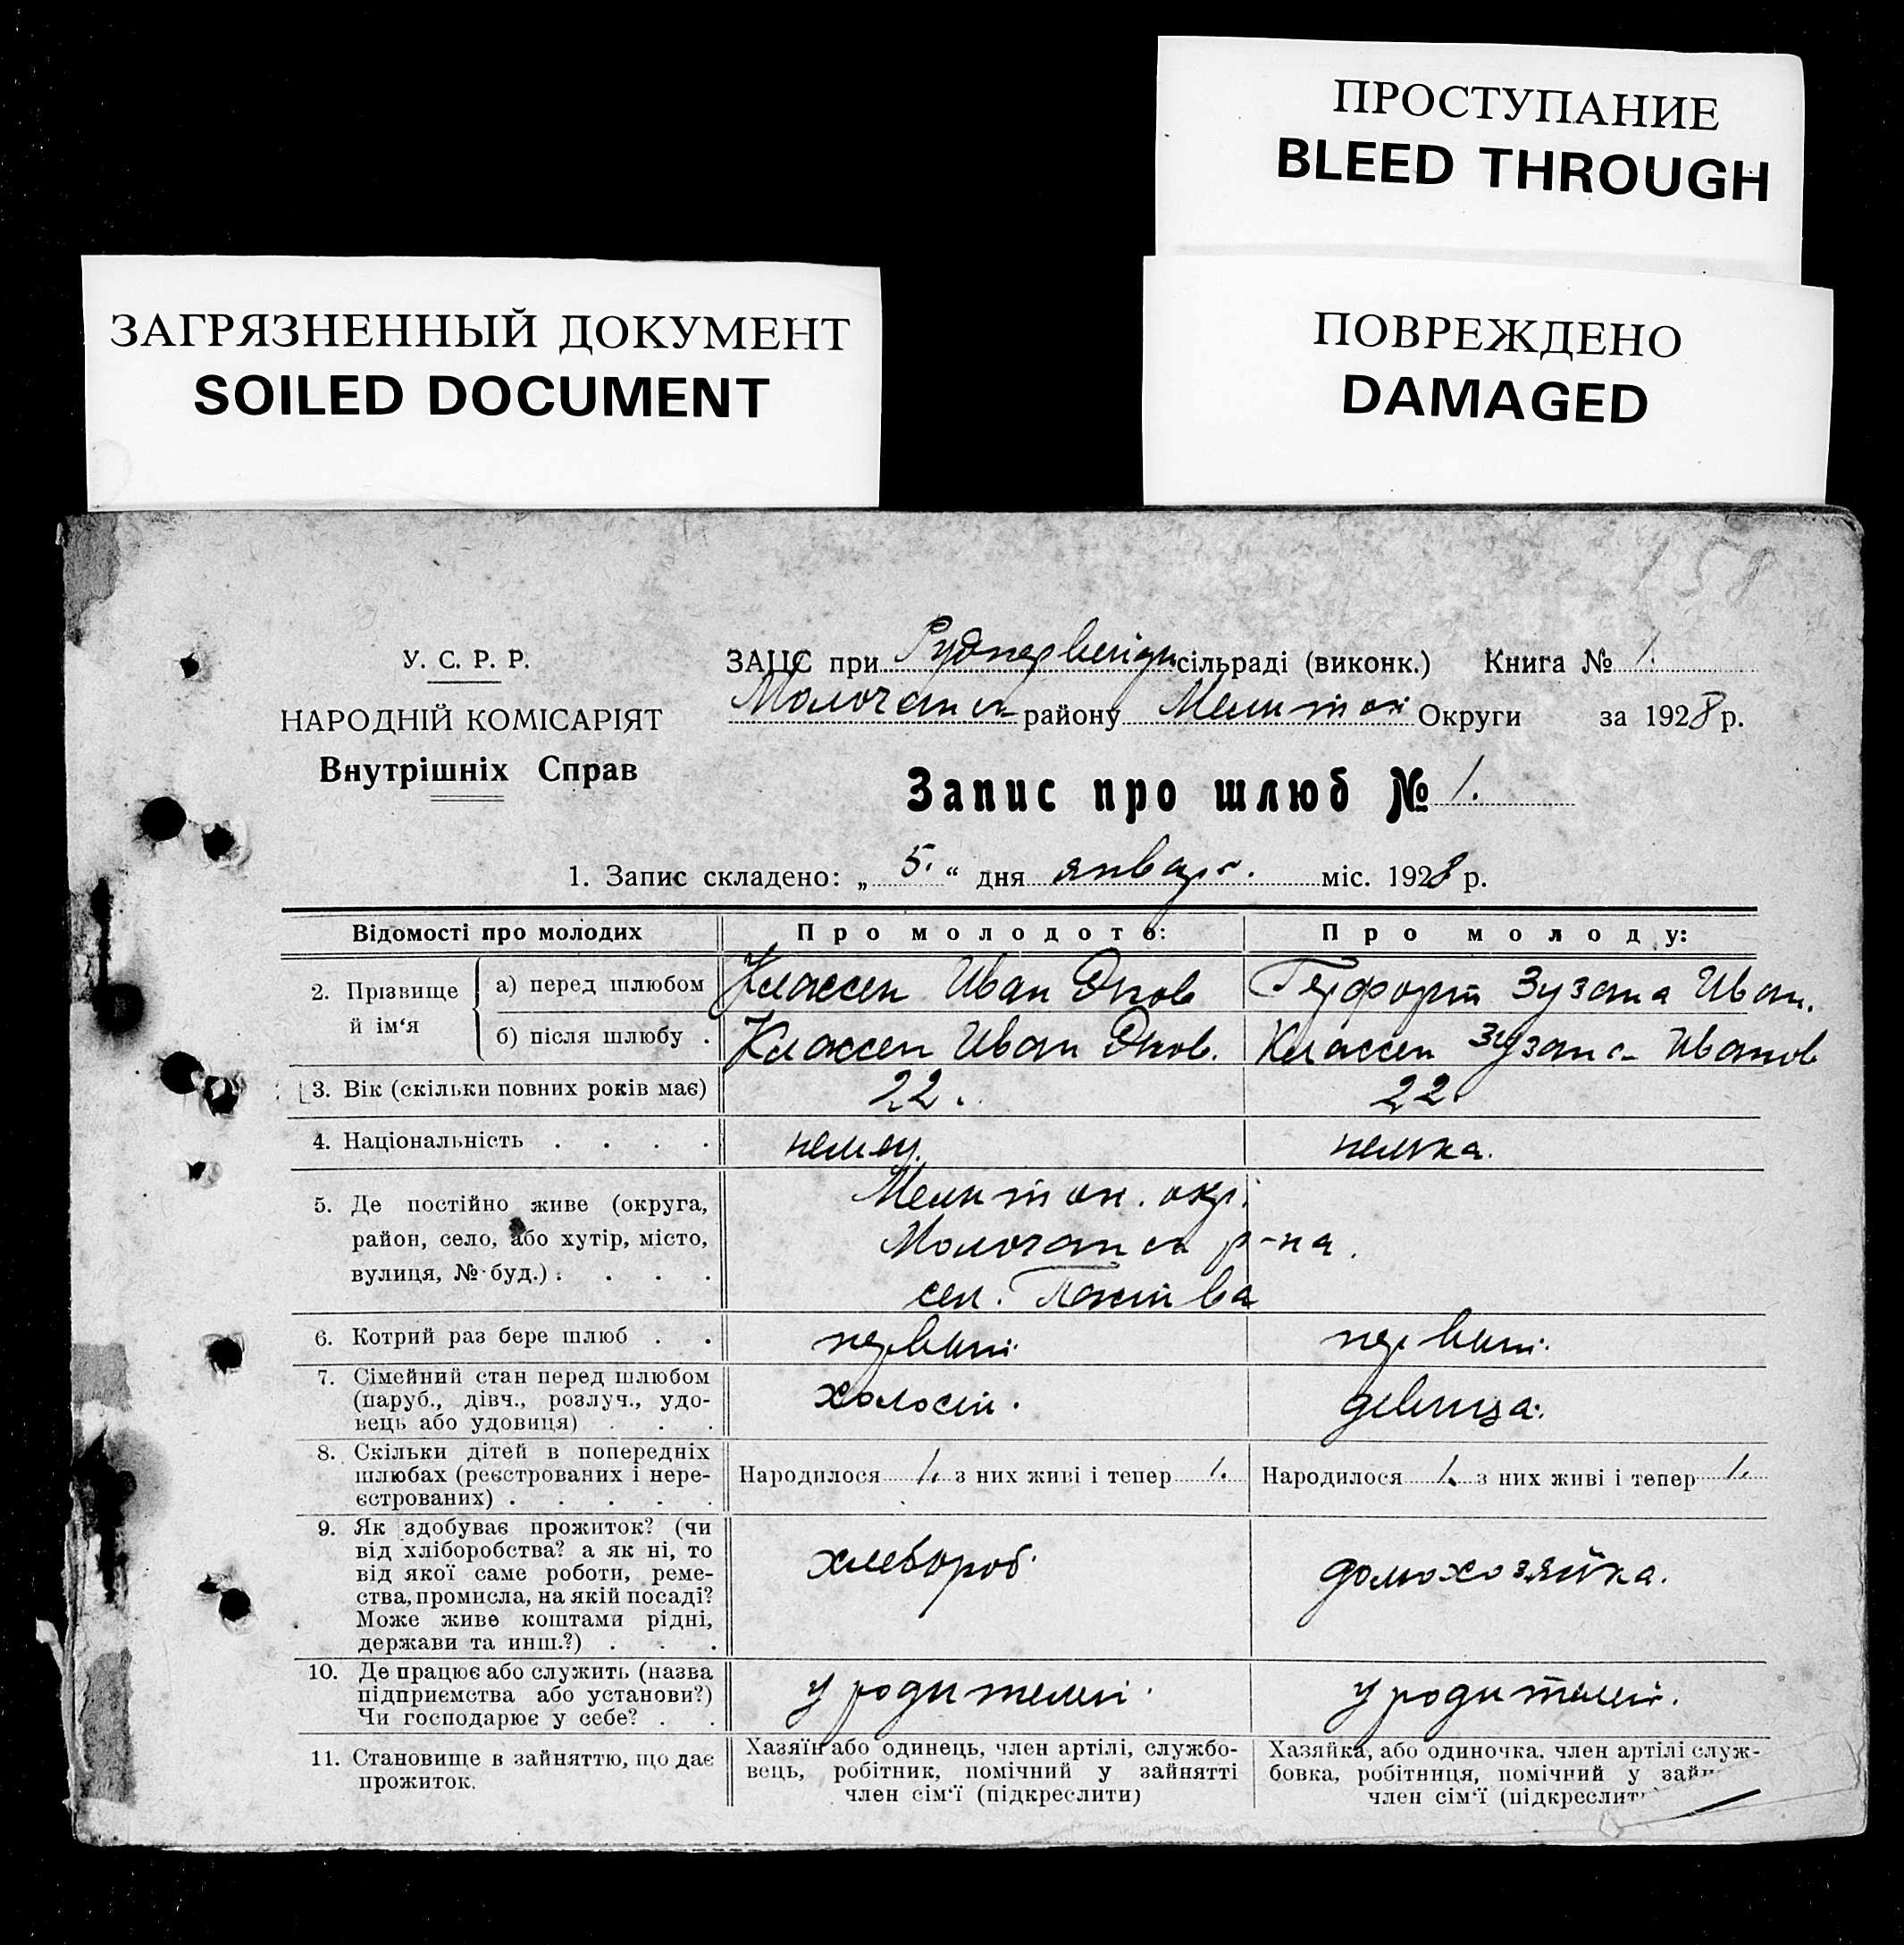 ПРОСТУПАНИЕ
BLEED THROUGH
ЗАГРЯЗНЕННЫЙ ДОКУМЕНТ
SOILED DOCUMENT
ПОВРЕЖДЕНО
DAMAGED
158
У. С. Р. Р.
НАРОДНІЙ КОМІСАРІЯТ
Внутрішніх Справ
ЗАЦС при сільраді (виконк.) Книга № 1.
Молочанск району Мелитоп Округи за 1928 р.
Запис про шлюб № 1.
1. Запис складено: „ 5. “ дня января. міс. 1928 р.
Відомості про молодих
Про молодого:
Про молоду:
2. Прізвище й ім‘я
а) перед шлюбом
Классен Иван Яков
Герфорт Зузана Иван.
б) після шлюбу .
Классен Иван Яков.
Классен Зузана Иванов
3. Вік (скільки повних років має)
22.
22
4. Національність . . . .
немец.
немка.
5. Де постійно живе (округа,
район, село, або хутір, місто,
вулиця, № буд.) . . . .
Мелитоп. окр.
Молочанск р-на.
сел.
6. Котрий раз бере шлюб . .
первый.
первый.
7. Сімейний стан перед шлюбом
(паруб., дівч., розлуч., удо-
вець або удовиця) . . .
холостй.
девица.
8. Скільки дітей в попередніх
шлюбах (реєстрованих і нере-
єстрованих) . . . . .
Народилося 1. з них живі і тепер 1.
Народилося 1. з них живі і тепер 1.
9. Як здобуває прожиток? (чи
від хліборобства? а як ні, то
від якої саме роботи, реме-
ства, промисла, на якій посаді?
Може живе коштами рідні,
держави та инш.?) . . .
хлебороб.
домохозяйка.
10. Де працює або служить (назва
підприємства або установи?)
Чи господарює у себе? . .
у родителей.
у родителей.
11. Становище в зайняттю, що дає
прожиток.
Хазяїн або одинець, член артілі, службо-
вець, робітник, помічний у зайнятті
член сім‘ї (підкреслити)
Хазяйка, або одиночка. член артілі служ-
бовка, робітниця, помічний у зайн
член сім‘ї (підкреслит